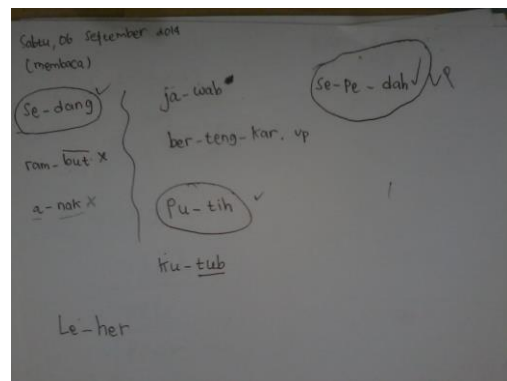 Sabtu, 06 September 2014
(membaca)
Se-dang ✓
ram-but x
a-nak x
ja-wab
ber-teng-kar. up
Pu-tih ✓
Ku-tub
Le-her
Se-pe-dah ✓ up